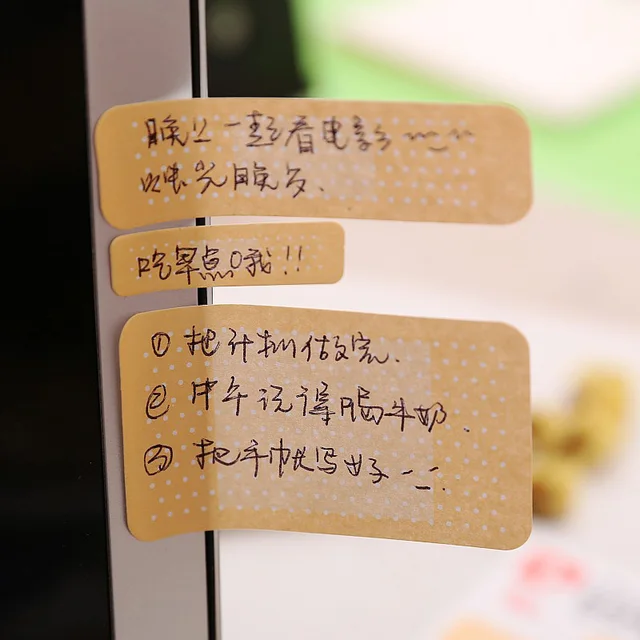 晚上一起看电影
晚
吃早点哦!!
① 把计划做完.
② 中午记得喝牛奶.
③ 把手帐写好